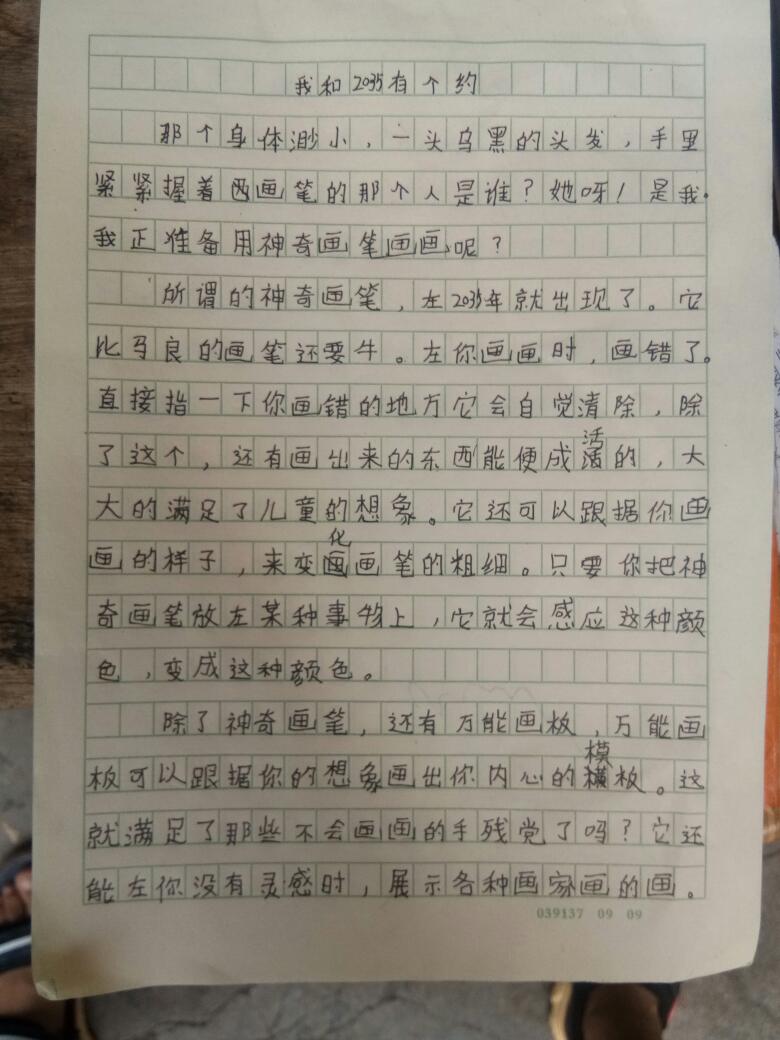 我和2035有个约
那个身体渺小，一头乌黑的头发，手里
紧紧握着画笔的那个人是谁？她呀！是我。
我正准备用神奇画笔画画呢？
所谓的神奇画笔，在2035年就出现了。它
比马良的画笔还要牛。在你画画时，画错了。
直接指一下你画错的地方它会自觉清除，除
了这个，还有画出来的东西能便成活的，大
大的满足了儿童的想象。它还可以跟据你画
画的样子，来变化画笔的粗细。只要你把神
奇画笔放在某种事物上，它就会感应这种颜
色，变成这种颜色。
除了神奇画笔，还有万能画板，万能画
板可以跟据你的想象画出你内心的模板。这
就满足了那些不会画画的手残党了吗？它还
能在你没有灵感时，展示各种画家画的画。
039137 09 09